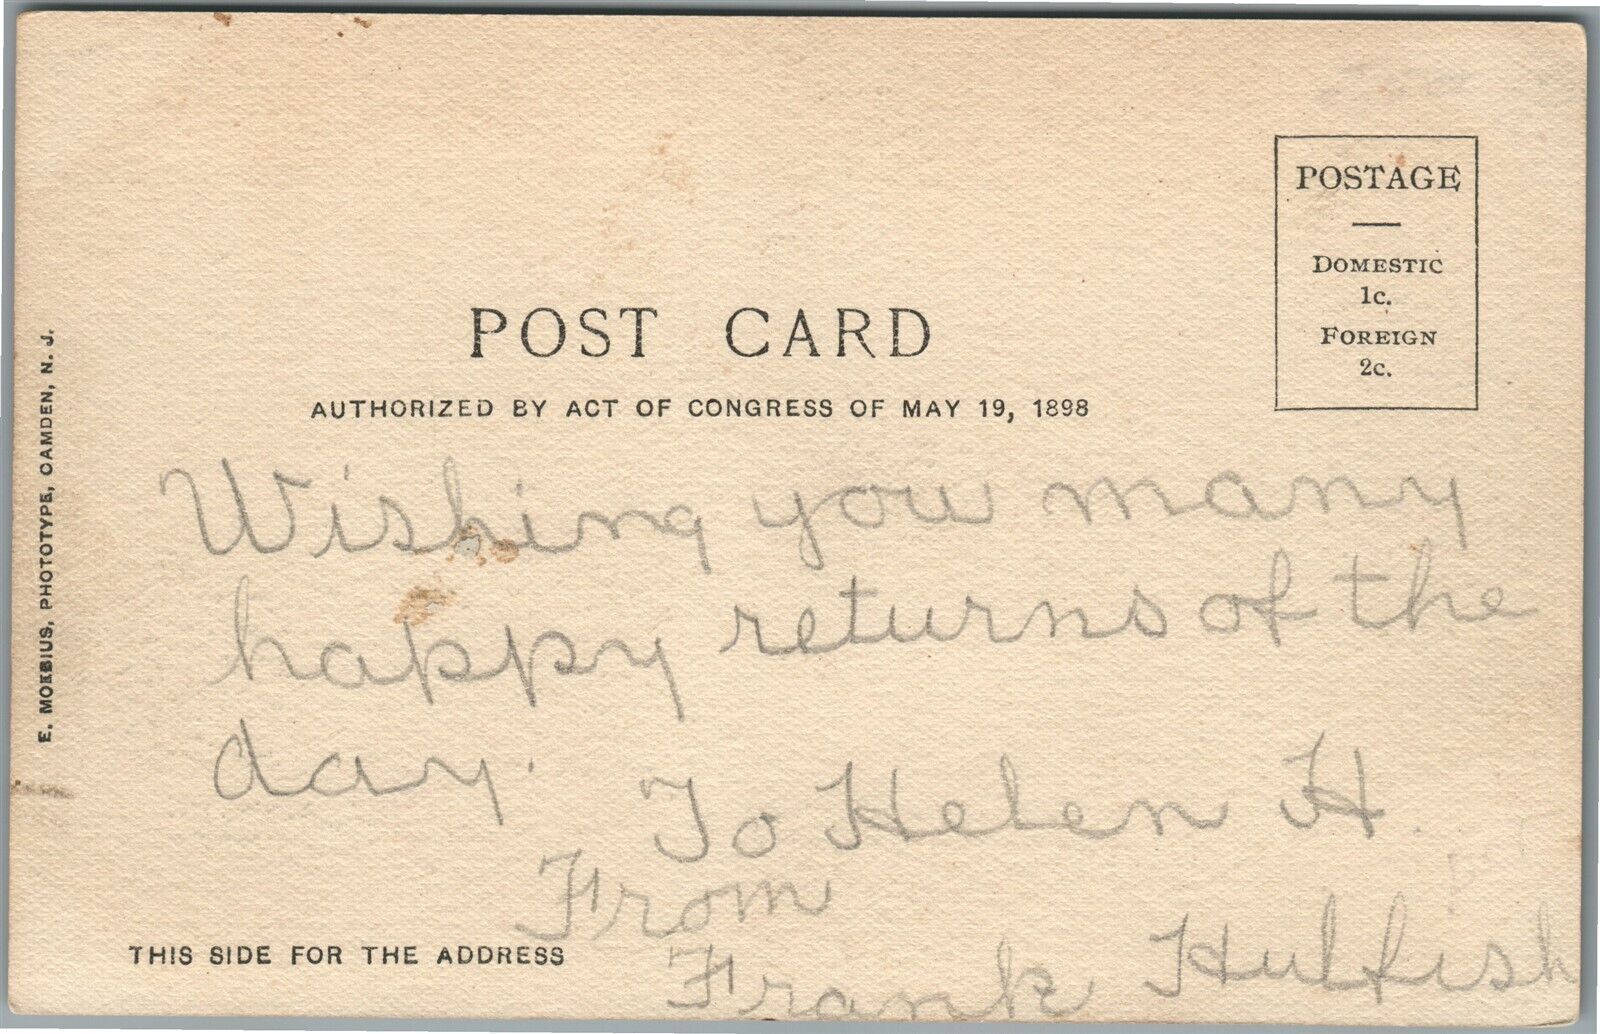 POSTAGE
DOMESTIC
1c.
FOREIGN
2c.
POST CARD
AUTHORIZED BY ACT OF CONGRESS OF MAY 19, 1898
E. MOEBIUS, PHOTOTYPE, CAMDEN, N. J.
Wishing you many
happy returns of the
day.
To Helen H.
From
Frank Hulfish
THIS SIDE FOR THE ADDRESS